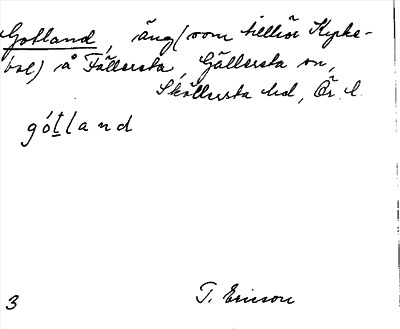 Gotland, äng (som tillhör Kyrko-
bol) å Fällersta, Gällersta sn,
Sköllersta hd, Ör. l.
gótland
3
T. Ericson